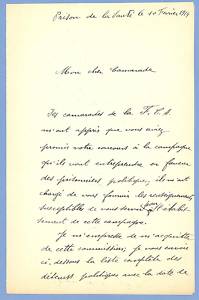 Prison de la Santé le 10 Février 1914
Mon cher Camarade
Les camarades de la F. C. A.
m'ont appris que vous aviez
promis votre concours à la campagne
qu'ils vont entreprendre en faveur
des prisonniers politiques, ils m'ont
chargé de vous fournir les renseignements
susceptibles de vous servir
sement de cette campagne.
Je m'empresse de m'acquitter
de cette commission; je vous envoie
ci-dessous la liste complète des
détenus politiques avec la date de